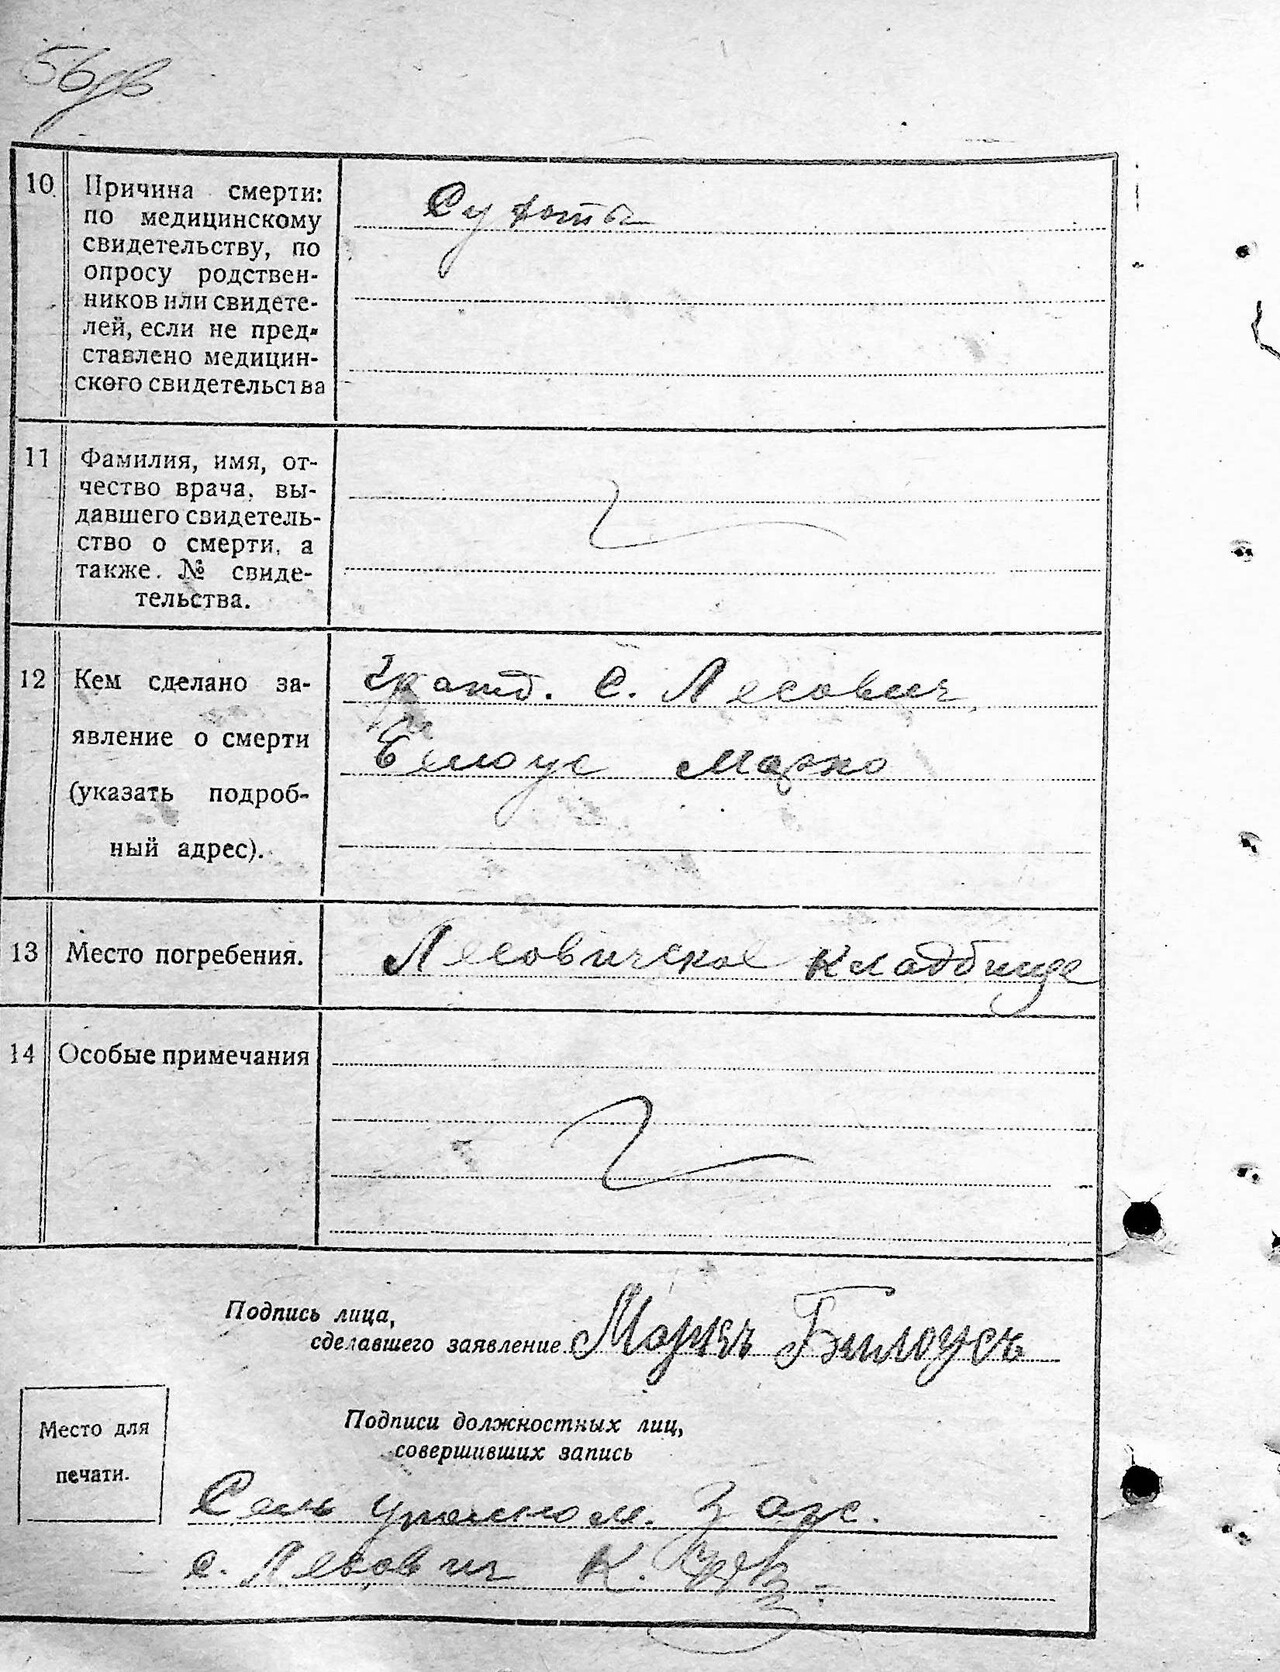 56
10
Причина смерти:
по медицинскому
свидетельству, по
опросу родствен-
ников или свидете-
лей, если не пред-
ставлено медицин-
ского свидетельства
11
Фамилия, имя, от-
чество врача, вы-
давшего свидетель-
ство о смерти, а
также. № свиде-
тельства.
12
Кем сделано за-
явление о смерти
(указать подроб-
ный адрес).
с. Лесович
Белоус Марко
13
Место погребения.
Лесовичское кладбище
14
Особые примечания
Подпись лица,
сделавшего заявление
Билоусъ
Место для
печати.
Подписи должностных лиц,
совершивших запись
Сель Загс.
с. Лесович К.